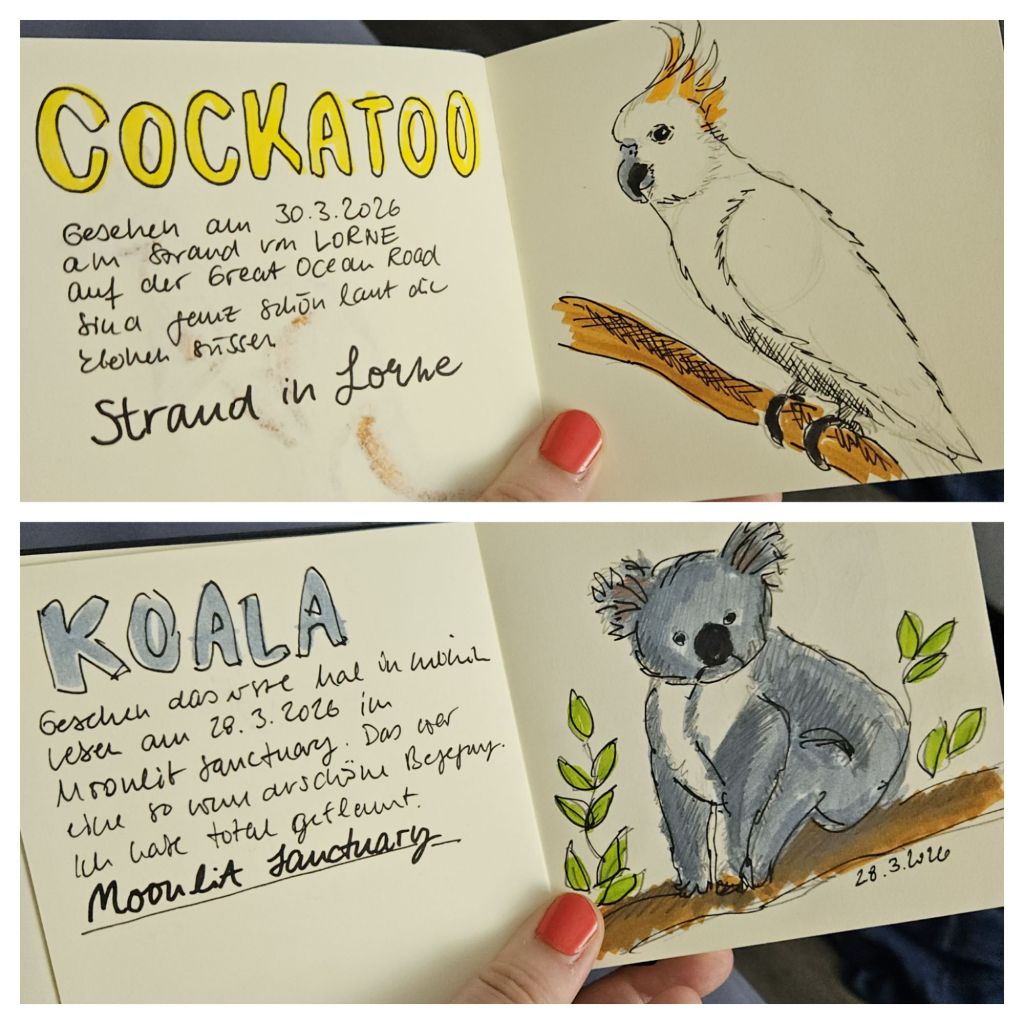 COCKATOO
Gesehen am 30.3.2026
am Strand von LORNE
auf der Great Ocean Road
sind ganz schön laut die
süssen
Strand in Lorne
KOALA
Gesehen das erste Mal in
am 28.3.2026 im
Moonlit Sanctuary. Das war
eine so wunderschöne Begegnung.
Ich habe total geflennt.
Moonlit Sanctuary
28.3.2026